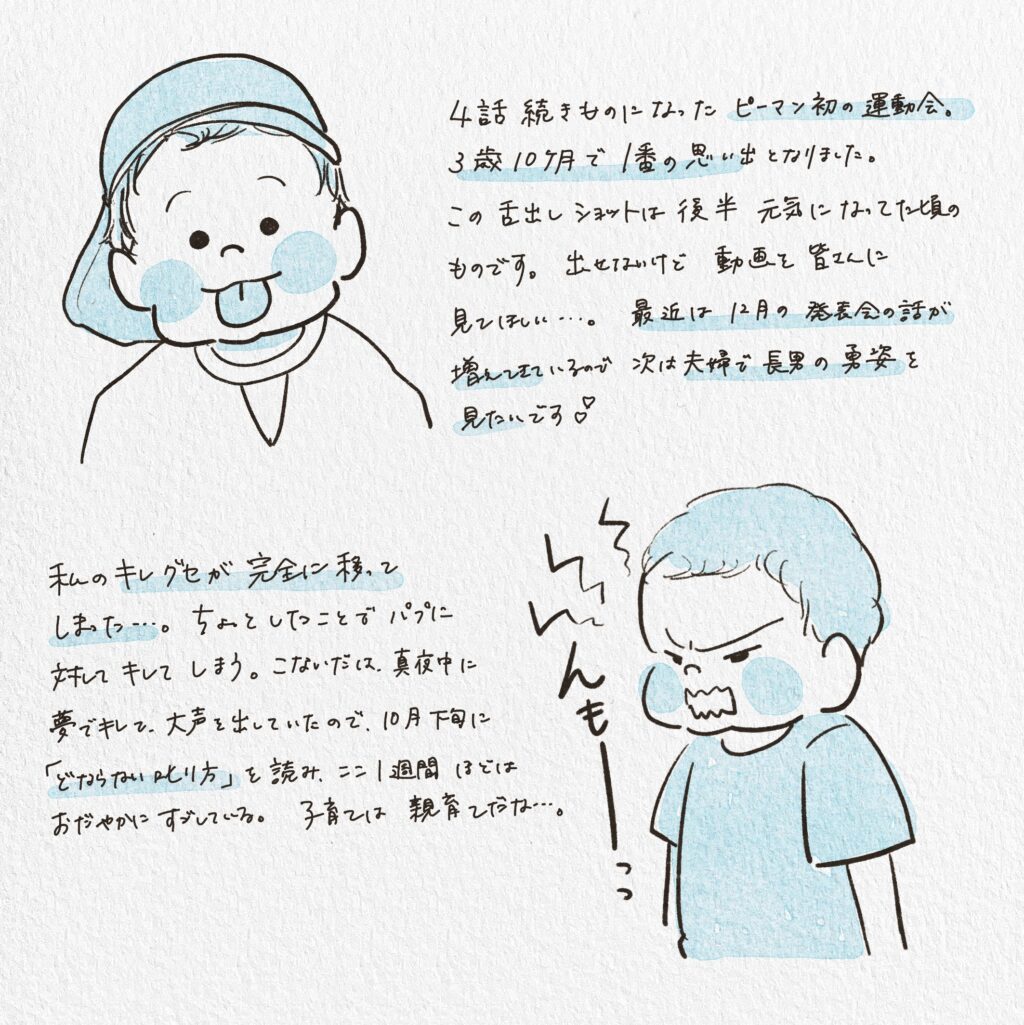 4話 続きものになった ピーマン初の運動会。
3歳10ヶ月で 1番の思い出となりました。
この舌出しショットは 後半 元気になってた頃の
ものです。 出せてないけど 動画を皆さんに
見てほしい…。 最近は 12月の 発表会の話が
増えてきているので 次は夫婦で長男の勇姿を
見たいです♡
私のキレグセが 完全に移って
しまった…。 ちょっとしたことで パプに
対して キレて しまう。こないだは、真夜中に
夢でキレて、大声を出していたので、10月下旬に
「どならない叱り方」を 読み、ここ1週間 ほどは
おだやかに すごしている。 子育ては 親育てだな…。
んもーっっ